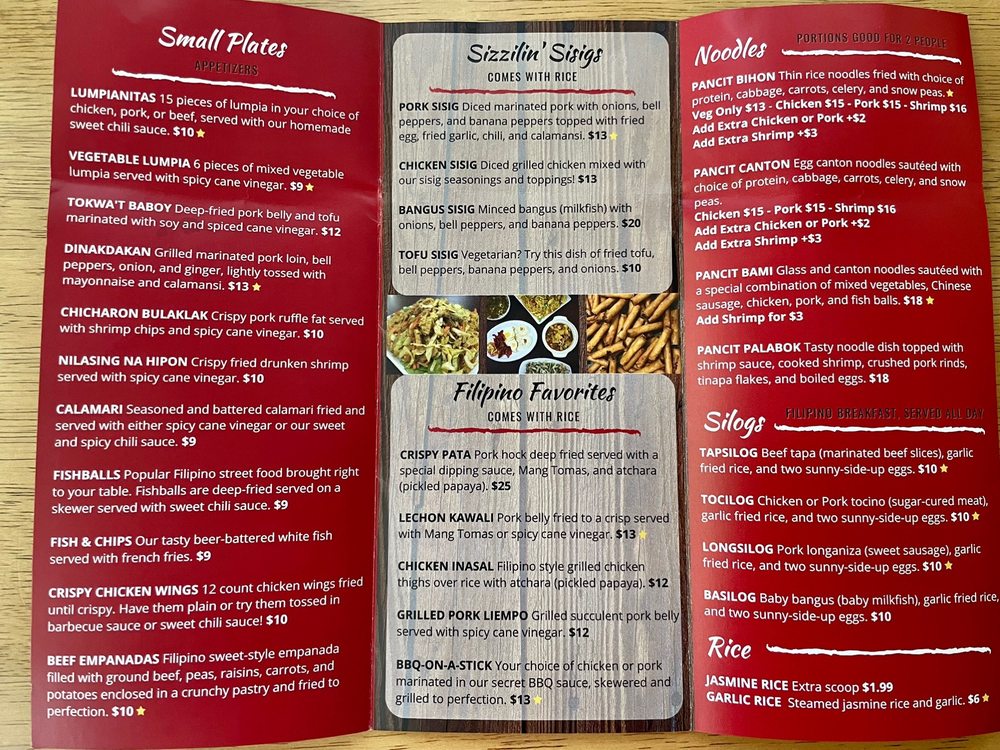 Small Plates
APPETIZERS
LUMPIANITAS 15 pieces of lumpia in your choice of
chicken, pork, or beef, served with our homemade
sweet chili sauce. $10
VEGETABLE LUMPIA 6 pieces of mixed vegetable
lumpia served with spicy cane vinegar. $9
TOKWA'T BABOY Deep-fried pork belly and tofu
marinated with soy and spiced cane vinegar. $12
DINAKDAKAN Grilled marinated pork loin, bell
peppers, onion, and ginger, lightly tossed with
mayonnaise and calamansi. $13
CHICHARON BULAKLAK Crispy pork ruffle fat served
with shrimp chips and spicy cane vinegar. $10
NILASING NA HIPON Crispy fried drunken shrimp
served with spicy cane vinegar. $10
CALAMARI Seasoned and battered calamari fried and
served with either spicy cane vinegar or our sweet
and spicy chili sauce. $9
FISHBALLS Popular Filipino street food brought right
to your table. Fishballs are deep-fried served on a
skewer served with sweet chili sauce. $9
FISH & CHIPS Our tasty beer-battered white fish
served with french fries. $9
CRISPY CHICKEN WINGS 12 count chicken wings fried
until crispy. Have them plain or try them tossed in
barbecue sauce or sweet chili sauce! $10
BEEF EMPANADAS Filipino sweet-style empanada
filled with ground beef, peas, raisins, carrots, and
potatoes enclosed in a crunchy pastry and fried to
perfection. $10
Sizzilin' Sisigs
COMES WITH RICE
PORK SISIG Diced marinated pork with onions, bell
peppers, and banana peppers topped with fried
egg, fried garlic, chili, and calamansi. $13
CHICKEN SISIG Diced grilled chicken mixed with
our sisig seasonings and toppings! $13
BANGUS SISIG Minced bangus (milkfish) with
onions, bell peppers, and banana peppers. $20
TOFU SISIG Vegetarian? Try this dish of fried tofu,
bell peppers, banana peppers, and onions. $10
Filipino Favorites
COMES WITH RICE
CRISPY PATA Pork hock deep fried served with a
special dipping sauce, Mang Tomas, and atchara
(pickled papaya). $25
LECHON KAWALI Pork belly fried to a crisp served
with Mang Tomas or spicy cane vinegar. $13
CHICKEN INASAL Filipino style grilled chicken
thighs over rice with atchara (pickled papaya). $12
GRILLED PORK LIEMPO Grilled succulent pork belly
served with spicy cane vinegar. $12
BBQ-ON-A-STICK Your choice of chicken or pork
marinated in our secret BBQ sauce, skewered and
grilled to perfection. $13
Noodles PORTIONS GOOD FOR 2 PEOPLE
PANCIT BIHON Thin rice noodles fried with choice of
protein, cabbage, carrots, celery, and snow peas.
Veg Only $13 - Chicken $15 - Pork $15 - Shrimp $16
Add Extra Chicken or Pork +$2
Add Extra Shrimp +$3
PANCIT CANTON Egg canton noodles sautéed with
choice of protein, cabbage, carrots, celery, and snow
peas.
Chicken $15 - Pork $15 - Shrimp $16
Add Extra Chicken or Pork +$2
Add Extra Shrimp +$3
PANCIT BAMI Glass and canton noodles sautéed with
a special combination of mixed vegetables, Chinese
sausage, chicken, pork, and fish balls. $18
Add Shrimp for $3
PANCIT PALABOK Tasty noodle dish topped with
shrimp sauce, cooked shrimp, crushed pork rinds,
tinapa flakes, and boiled eggs. $18
Silogs FILIPINO BREAKFAST, SERVED ALL DAY
TAPSILOG Beef tapa (marinated beef slices), garlic
fried rice, and two sunny-side-up eggs. $10
TOCILOG Chicken or Pork tocino (sugar-cured meat),
garlic fried rice, and two sunny-side-up eggs. $10
LONGSILOG Pork longaniza (sweet sausage), garlic
fried rice, and two sunny-side-up eggs. $10
BASILOG Baby bangus (baby milkfish), garlic fried rice,
and two sunny-side-up eggs. $10
Rice
JASMINE RICE Extra scoop $1.99
GARLIC RICE Steamed jasmine rice and garlic. $6